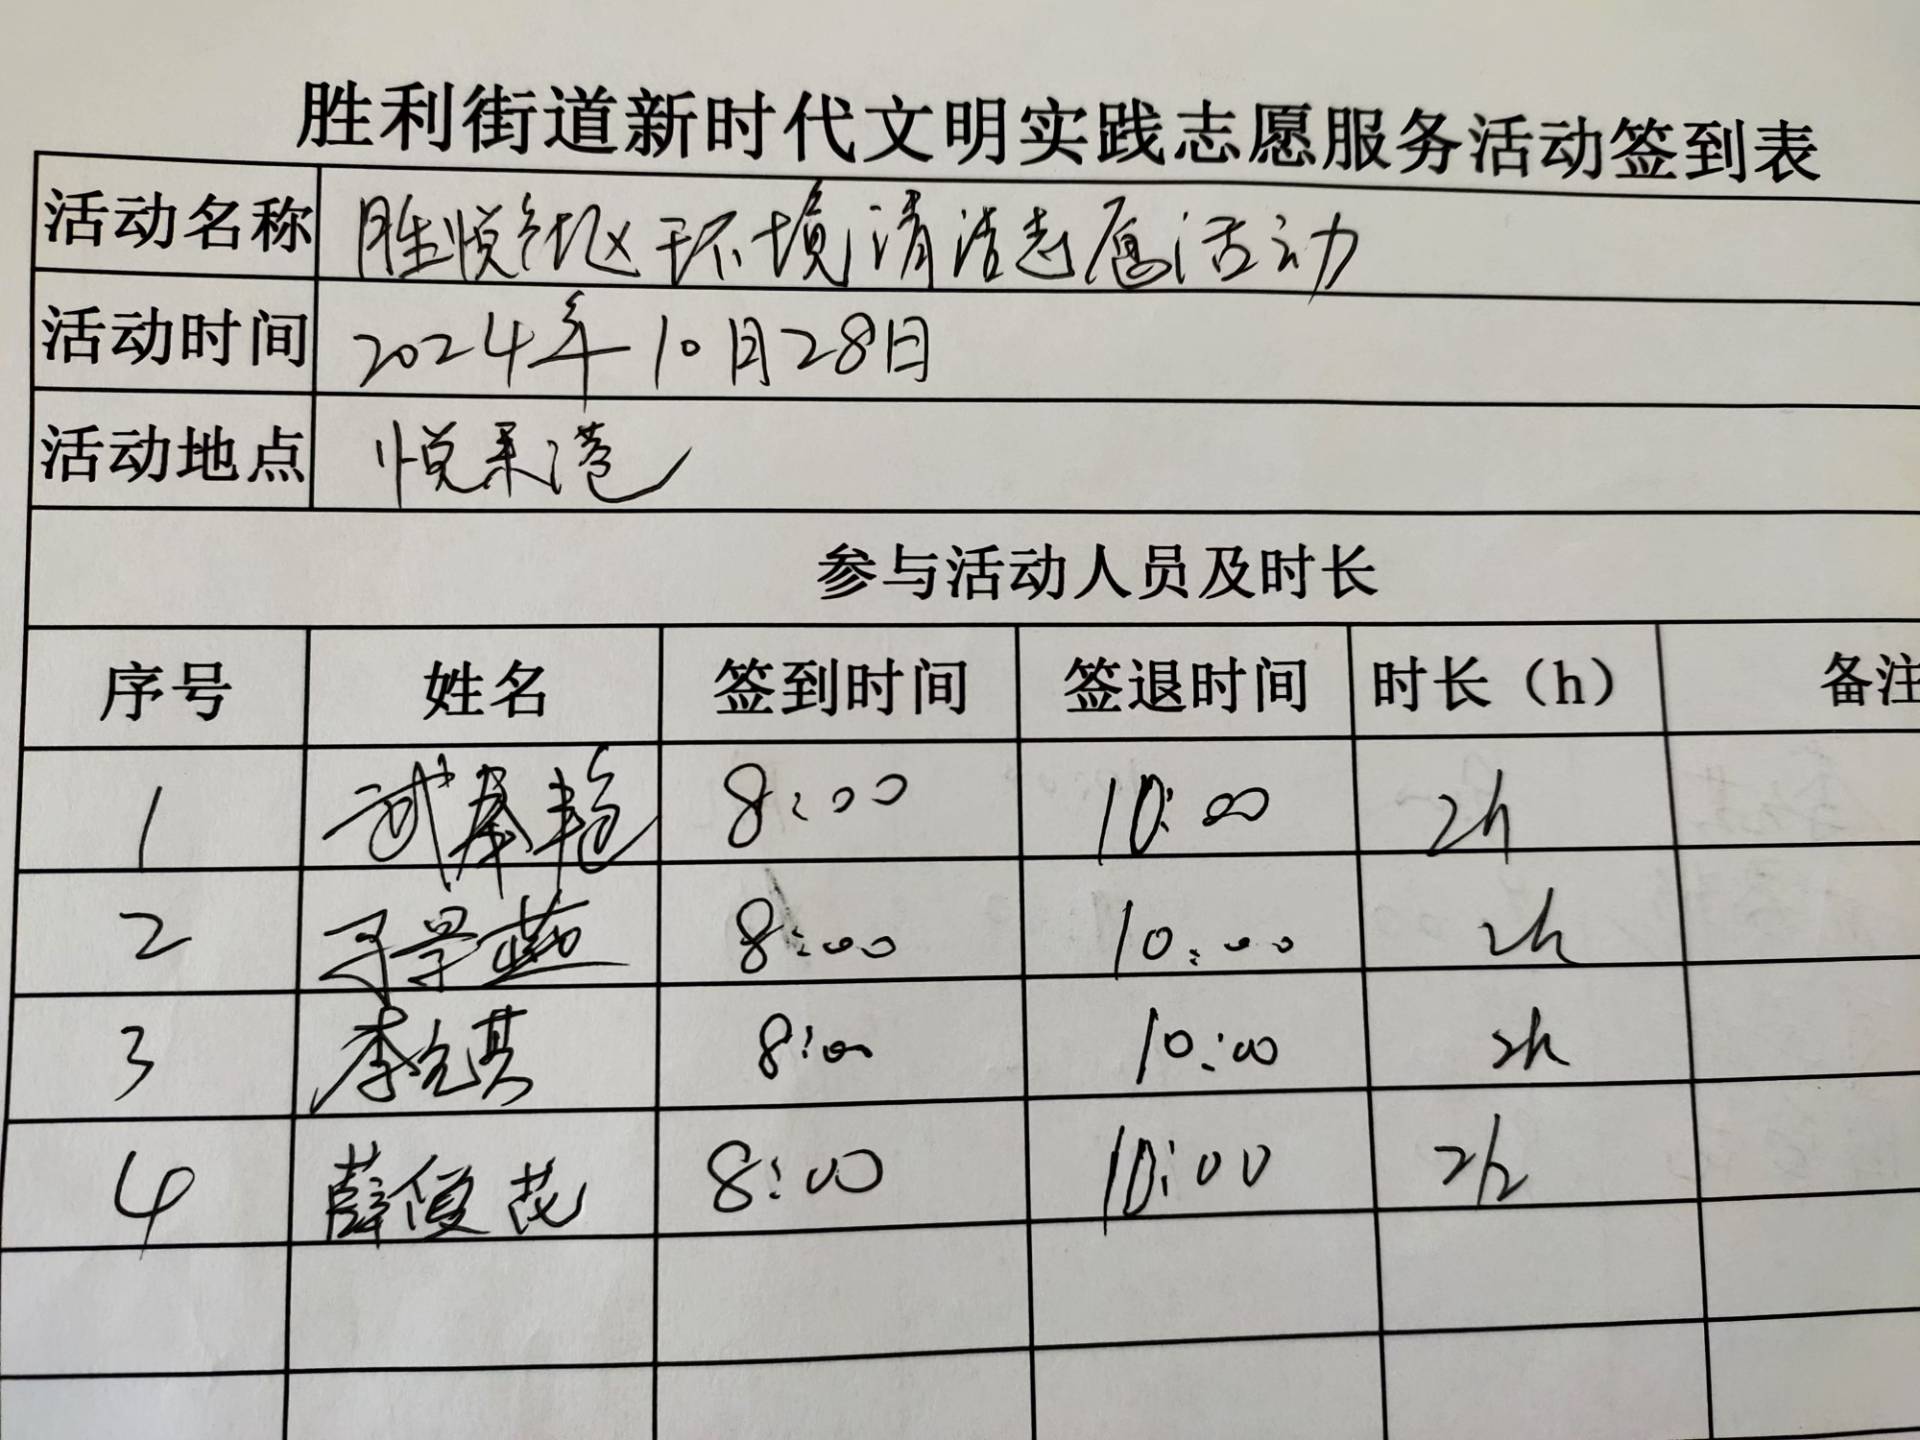 胜利街道新时代文明实践志愿服务活动签到表
活动名称 胜悦社区环境清洁志愿活动
活动时间 2024年10月28日
活动地点 悦来港
参与活动人员及时长
序号 姓名 签到时间 签退时间 时长（h） 备注
1 武春艳 8:00 10:00 2h
2 景燕 8:00 10:00 2h
3 李 8:00 10:00 2h
4 薛俊花 8:00 10:00 2h